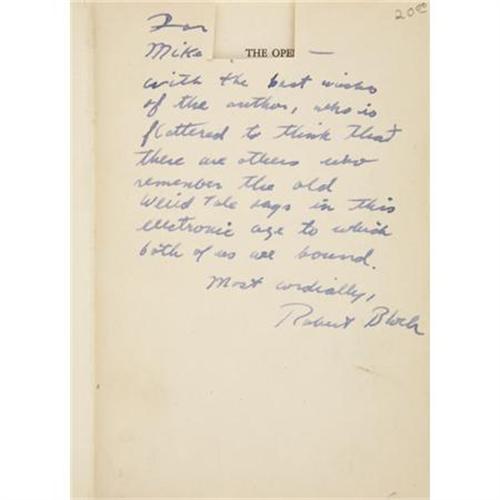 20.00
For
Mike THE OPE —
with the best wishes
of the author, who is
flattered to think that
there are others who
remember the old
Weird Tale days in this
electronic age to which
both of us are bound.
Most cordially,
Robert Bloch